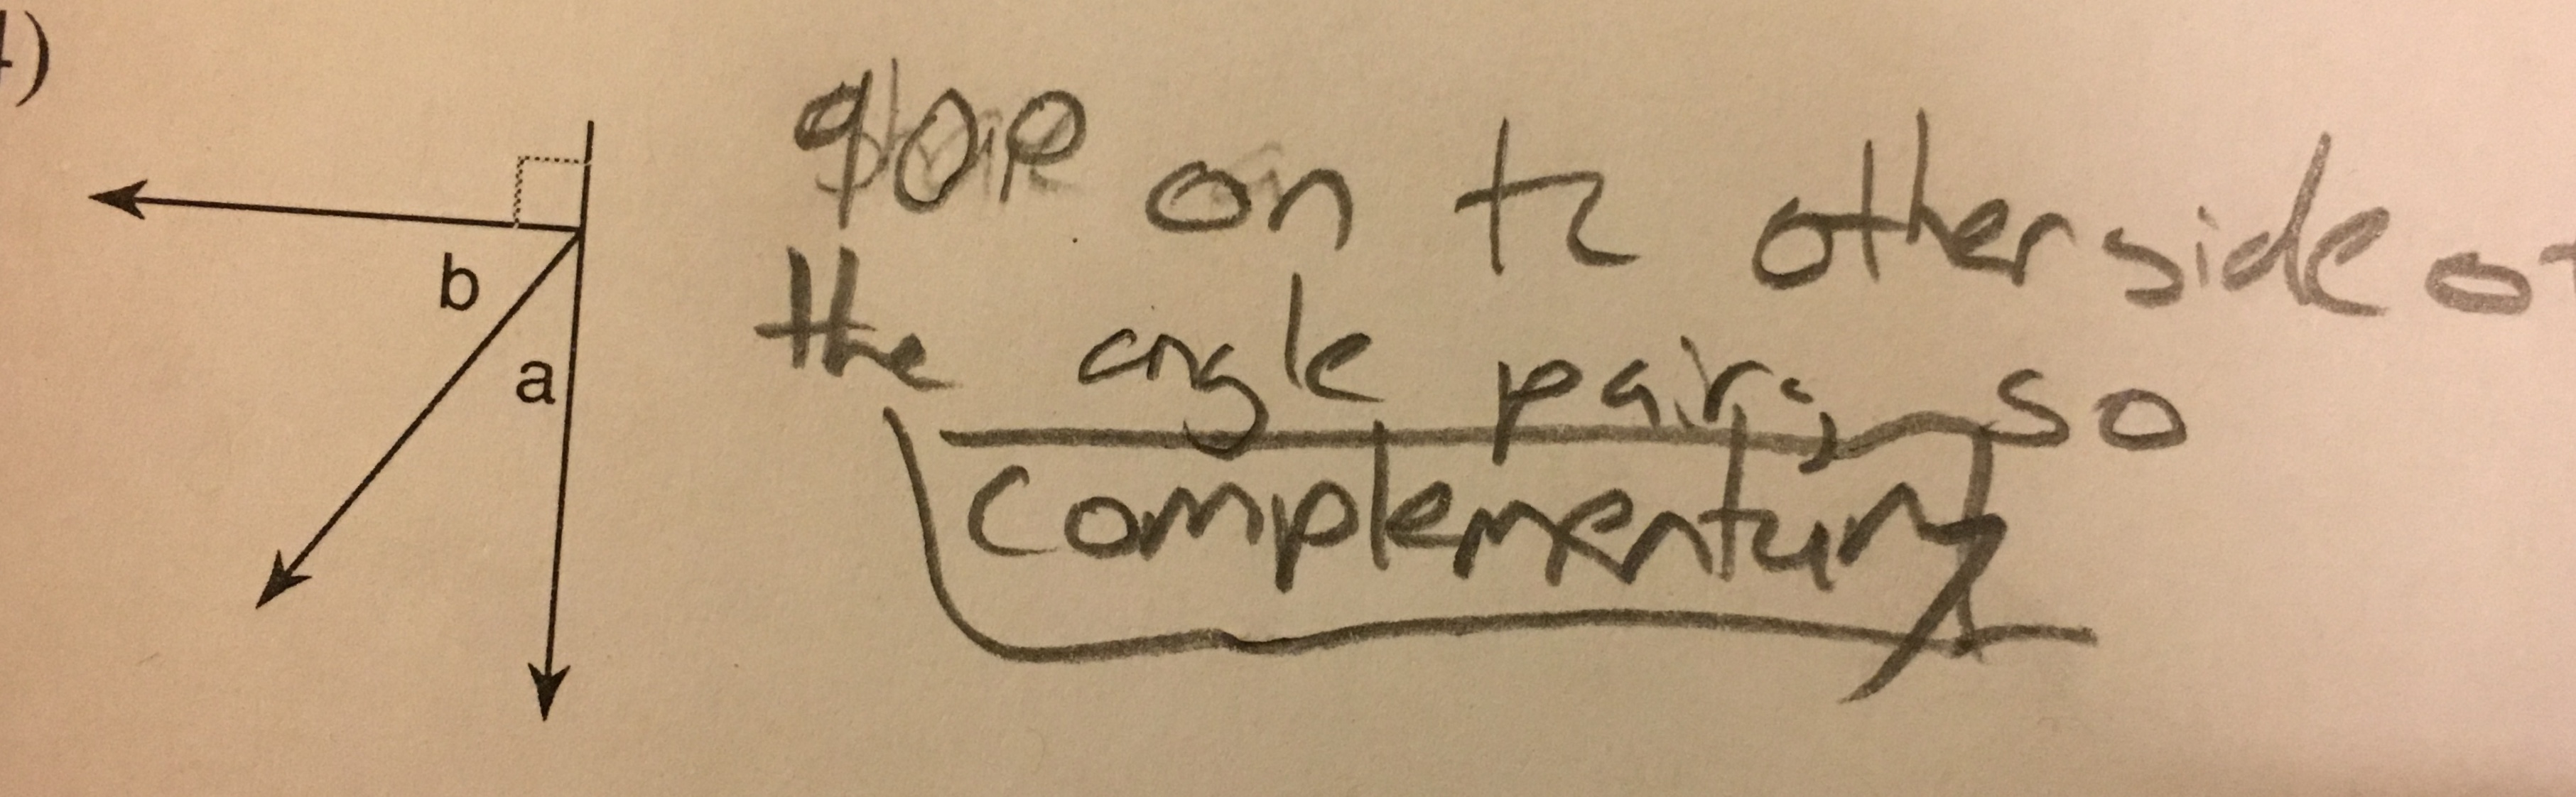 4)
b
a
90° on the other side of
the angle pair, so
complementary